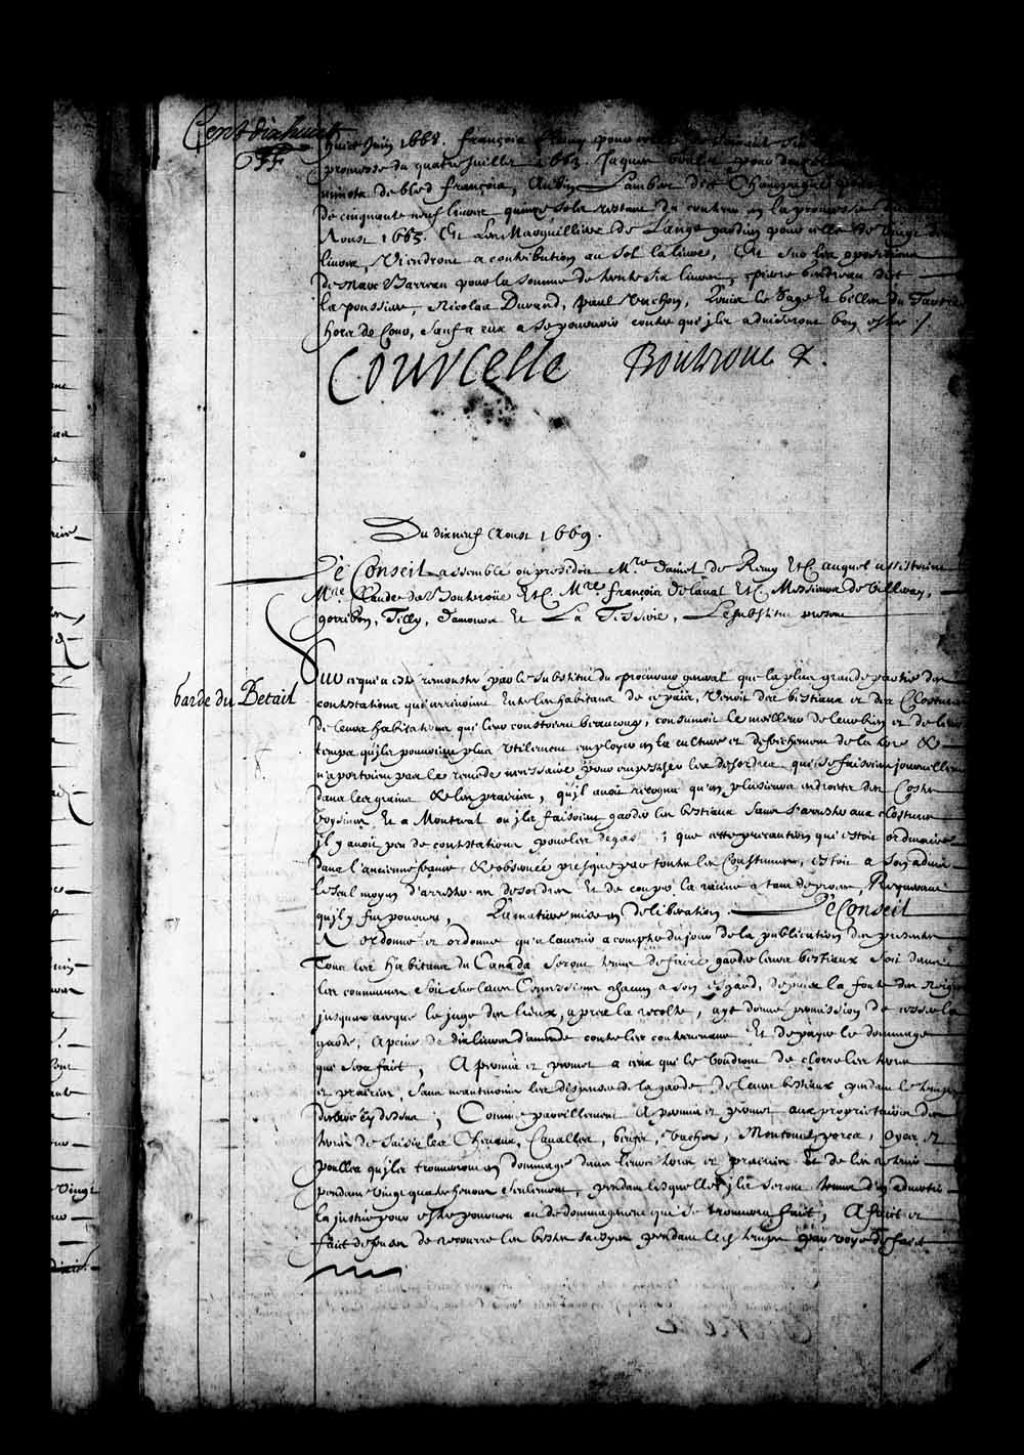 Cent dix huict
huict Juin 1668. François pour
promesse du quatre Juillet 1663. Jaques pour
minots de bled françois, Aubin Lambert dit Champagne
de cinquante neuf livres quinze sols restant du contenu en la promesse
Aoust 1665. Et Les Marguilliers de L'ange gardien pour celle de vingt
livres, viendront a contribution au sol la livre, Et sur les oppositions
de Marc Barreau pour la somme de trente six livres, pierre dit
la poussiere, Nicolas Durand, paul vachon, Louis Le Sage et
hors de Cour, sauf a eux a se pourvoir contre qu'jls adviseront bon estre /
Courcelle Boutroue &.
Du dix neuf Aoust 1669.
Le Conseil assemblé ou presidoit Mre. Daniel de Remy &c. auquel assistoient
Mre. Claude de Boutroüe &c. Mre. françois de Laval &c. Messieurs de Villeray,
gorribon, Tilly, Damours et La Tesserie, Le substitut present
Garde du Betail
Sur ce qui a esté remonstré par le substitut du procureur general que la plus grande partie des
contestations qui arrivoient Entre les habitans de ce païs, venoit des bestiaux et des Clostures
de leurs habitations qui leur coustoient beaucoup, consumoit le meilleur de leur bien et de leur
temps qu'jls pouvoient plus utilement employer en la culture et defrichement de la terre &
n'aportoient pas le remede necessaire pour empescher les desordres qui se faisoient journellement
dans les grains & les prairies, qu'jl avoit recogneu qu'en plusieurs endroits des Costes
voysines et a Montreal ou jls faisoient garder les bestiaux sans s'arrester aux clostures
jl y avoit peu de contestations pour les degats ; que cette precaution qui estoit ordinaire
dans l'ancienne france, & observée presque par toutes les Coustumes, estoit a son advis
le seul moyen d'arrester ces desordres et de couper la racine a tant de proces, Requerant
qu'jl y fut pourveu, La matiere mise en deliberation Le Conseil
A ordonné et ordonne qu'a l'avenir a compter du jour de la publication des presentes
Tous les habitans du Canada seront tenus de faire garder leurs bestiaux soit dans
les communes soit sur leurs Concessions chacun a son esgard, depuis la fonte des Neiges
jusques a ce que le juge des lieux, apres la recolte, ayt donné permission de cesser la
garde, a peine de dix livres d'amende contre les contrevenans Et de payer le dommage
qui sera fait, A permis et permet a ceux qui le voudront de clorre les terres
et prairies, sans neantmoins les dispenser de la garde de leurs bestiaux pendant le temps
; Comme pareillement A permis et permet aux proprietaires des
terres de saisir les Chevaux, Cavalles, boeufs, vaches, Moutons, porcs, oyes, et
poulles qu'jls trouveront en dommage dans leurs terres et prairies Et de les retenir
pendant vingt quatre heures seulement, pendant lesquelles jls seront tenus d'en advertir
la justice pour estre pourveu au dedommagement qui se trouvera fait, A fait et
fait defenses de recourre les bestes saisyes pendant led. temps par voye de fait